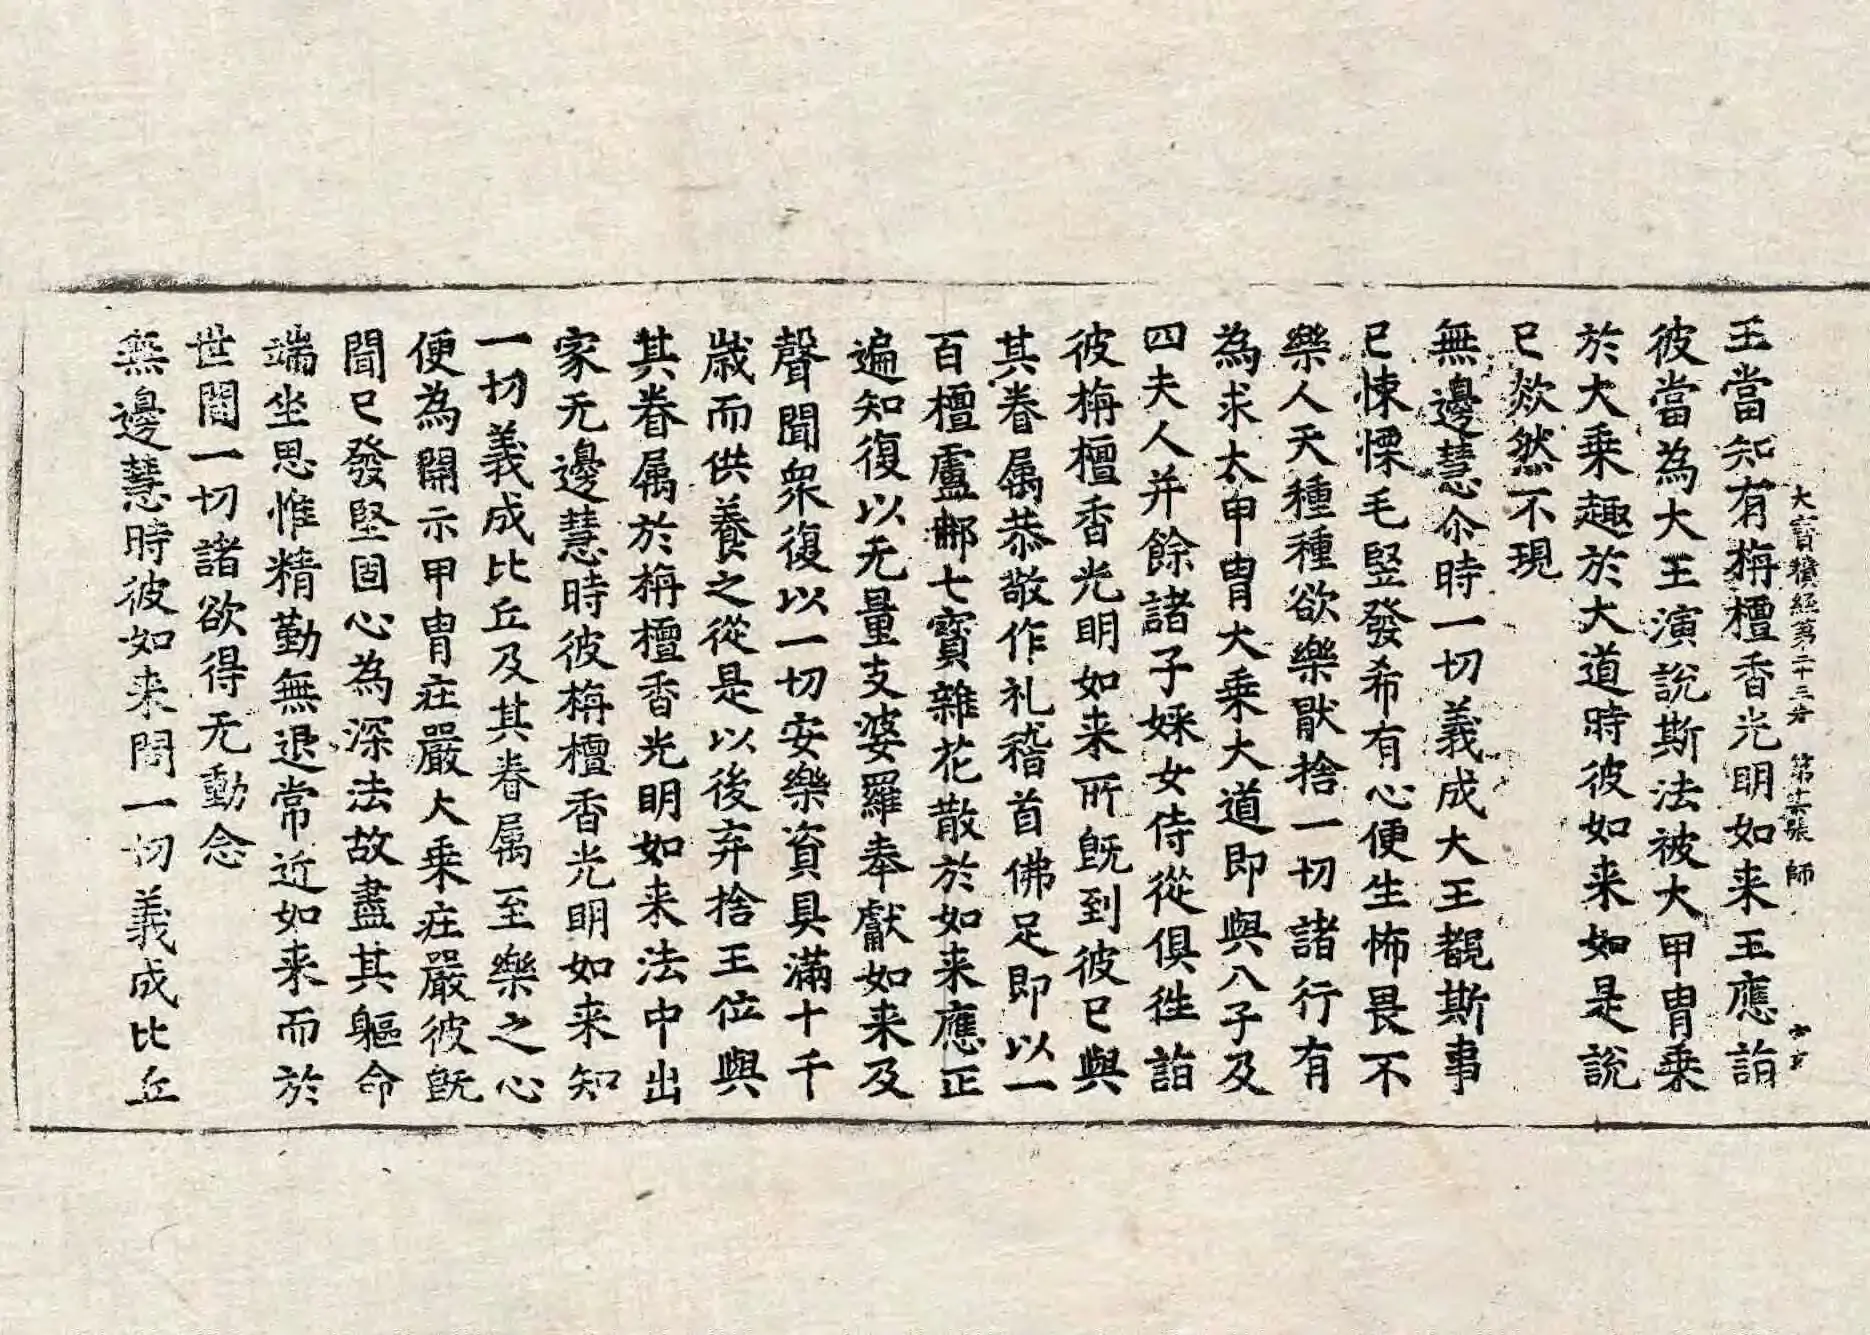 王當知有栴檀香光明如来王應詣
大寶積經第二十三卷 第 張 師
彼當為大王演說斯法被大甲冑乗
於大乗趣於大道時彼如来如是說
已欻然不現
無邊慧尒時一切義成大王覩斯事
已悚慄毛竪發希有心便生怖畏不
樂人天種種欲樂猒捨一切諸行有
為求太甲冑大乗大道即與八子及
四夫人并餘諸子婇女侍從俱徃詣
彼栴檀香光明如来所旣到彼已與
其眷属恭敬作礼稽首佛足即以一
百檀盧那七寳雜花散於如来應正
遍知復以无量支婆羅奉獻如来及
聲聞衆復以一切安樂資具滿十千
歳而供養之從是以後弃捨王位與
其眷属於栴檀香光明如来法中出
家无邊慧時彼栴檀香光明如来知
一切義成比丘及其眷属至樂之心
便為開示甲冑庄嚴大乗庄嚴彼旣
聞已發堅固心為深法故盡其軀命
端坐思惟精勤無退常近如来而於
世間一切諸欲得无動念
無邊慧時彼如来問一切義成比丘